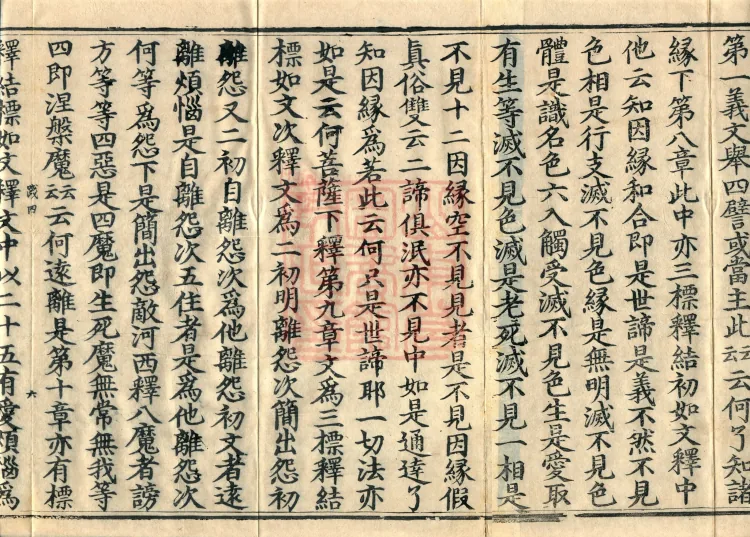 第一義文舉四譬或當主此云云云何了知諸
緣下第八章此中亦三標釋結初如文釋中
他云知因緣和合即是世諦是義不然不見
色相是行支滅不見色緣是無明滅不見色
體是識名色六入觸受滅不見色生是愛取
有生等滅不見色滅是老死滅不見一相是
不見十二因緣空不見見者是不見因緣假
真俗雙云二諦俱泯亦不見中如是通達了
知因緣為若此云何只是世諦耶一切法亦
如是云何菩薩下釋第九章文為三標釋結
標如文次釋文為二初明離怨次簡出怨初
離怨又二初自離怨次為他離怨初文者遠
離煩惱是自離怨次五住者是為他離怨次
何等為怨下是簡出怨敵河西釋八魔者謗
方等等四惡是四魔即生死魔無常無我等
四即涅槃魔云云云何遠離是第十章亦有標
釋結標如文釋文中以二十五有愛煩惱為